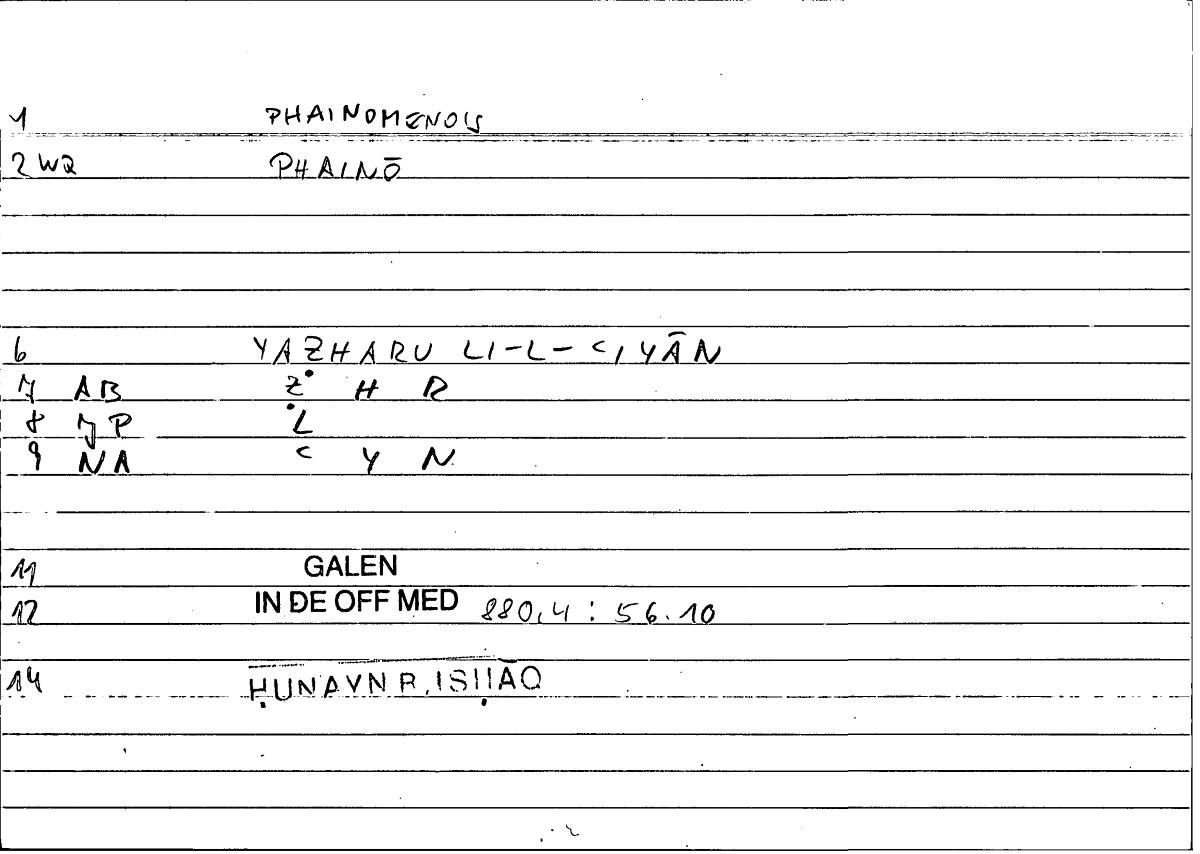 1 PHAINOMENOIS
2 WQ PHAINŌ
6 YAẒHARU LI-L-ʿIYĀN
7 AB Ẓ H R
8 JP L
9 NA ʿ Y N
11 GALEN
12 IN DE OFF MED 880,4 : 56.10
14 ḤUNAYN B. ISḤĀQ